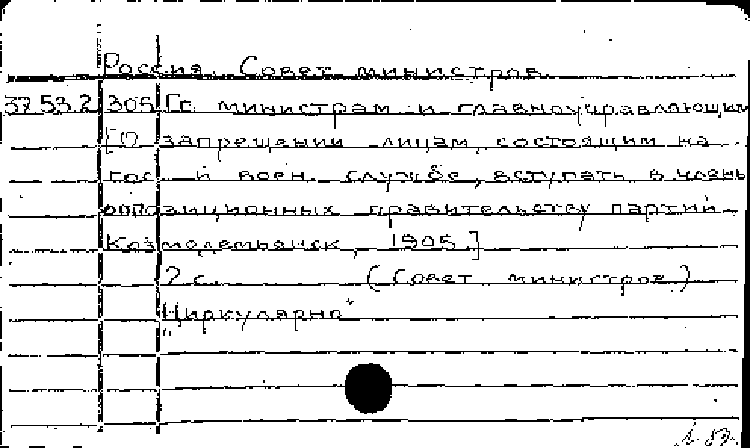 Россия. Совет министров.
37.53.2 305 Гг. министрам и главноуправляющим
[О запрещении лицам, состоящим на
гос. и воен. службе, вступать в члены
оппозиционных правительству партий.
Козмодемьянск, 1905.]
2 с. (Совет министров.)
"Циркулярно"